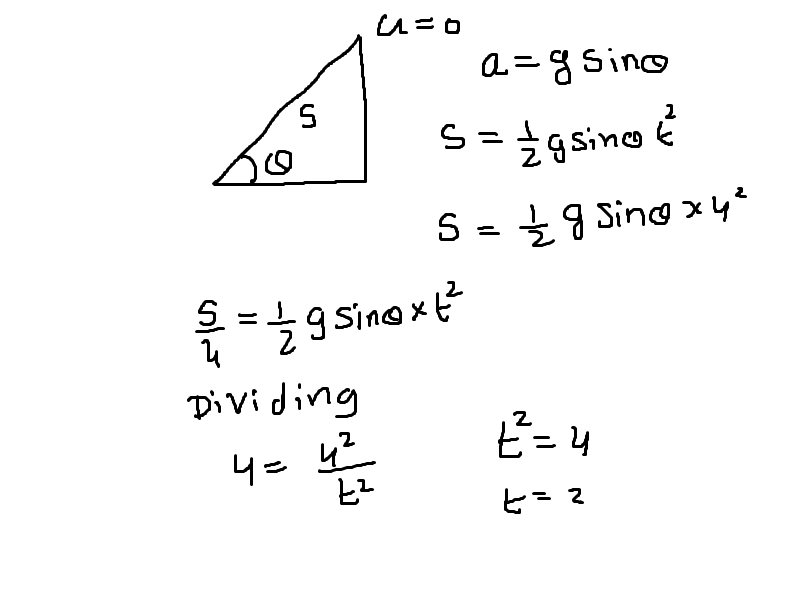 u=0
a=g sinθ
S
θ
S = 1/2 g sinθ t²
S = 1/2 g sinθ × 4²
S/4 = 1/2 g sinθ × t²
Dividing
4 = 4²/t²
t² = 4
t = 2